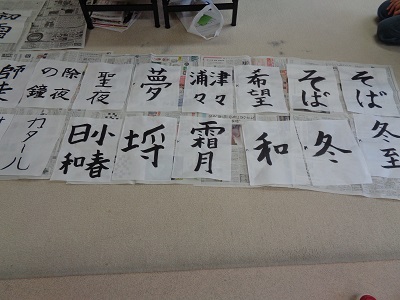 そば
そば
希望
津々
浦々
夢
聖夜
除夜
の鐘
師走
冬至
冬
和
霜月
小春
日和
カタール